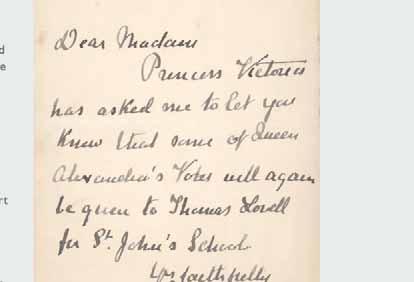 d
e
rt
Dear Madam
Princess Victoria
has asked me to let you
know that some of Queen
Alexandra's Votes will again
be given to Thomas Lovell
for St. John's School.
Yrs faithfully